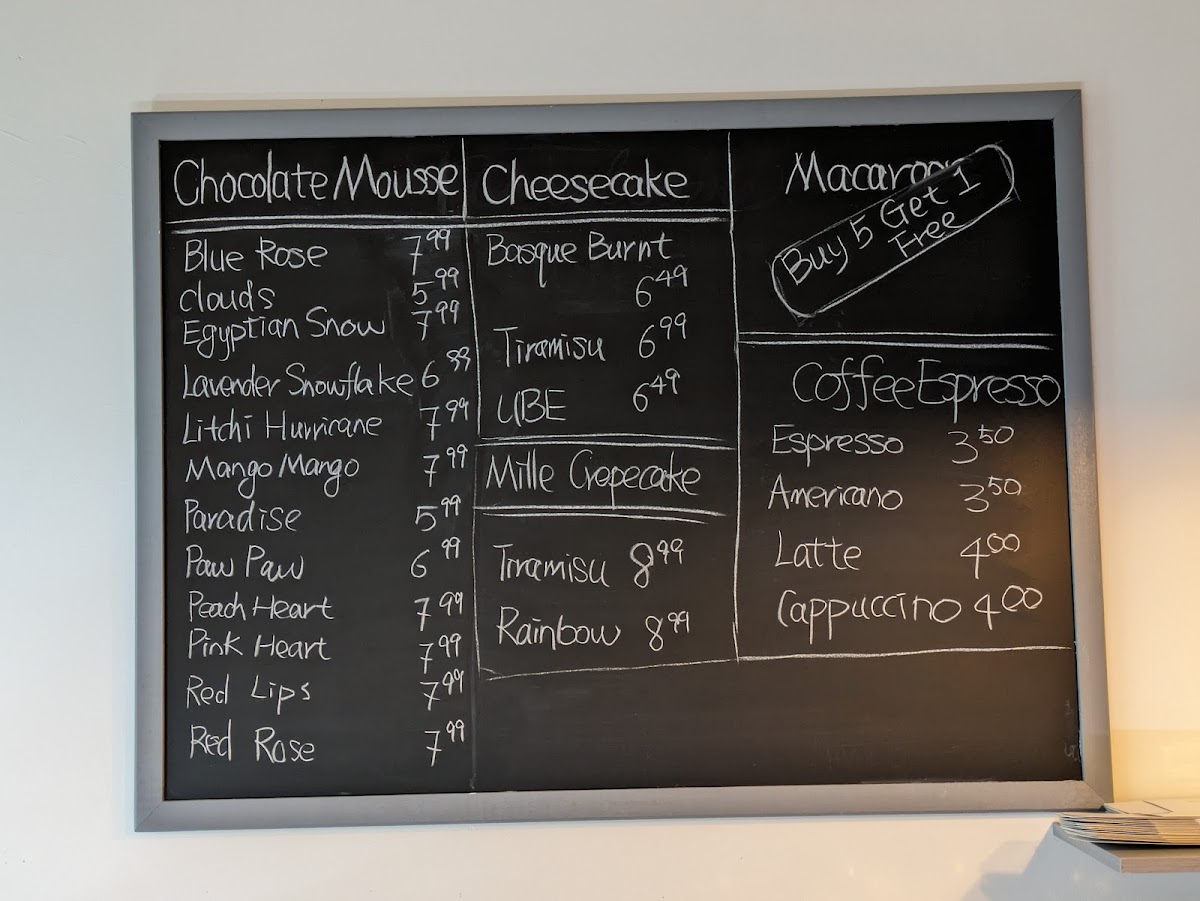 Chocolate Mousse
Blue Rose 7.99
clouds 5.99
Egyptian Snow 7.99
Lavender Snowflake 6.99
Litchi Hurricane 7.99
Mango Mango 7.99
Paradise 5.99
Paw Paw 6.99
Peach Heart 7.99
Pink Heart 7.99
Red Lips 7.99
Red Rose 7.99
Cheesecake
Basque Burnt
6.49
Tiramisu 6.99
UBE 6.49
Mille Crepecake
Tiramisu 8.99
Rainbow 8.99
Buy 5 Get 1
Free
Coffee Espresso
Espresso 3.50
Americano 3.50
Latte 4.00
Cappuccino 4.00